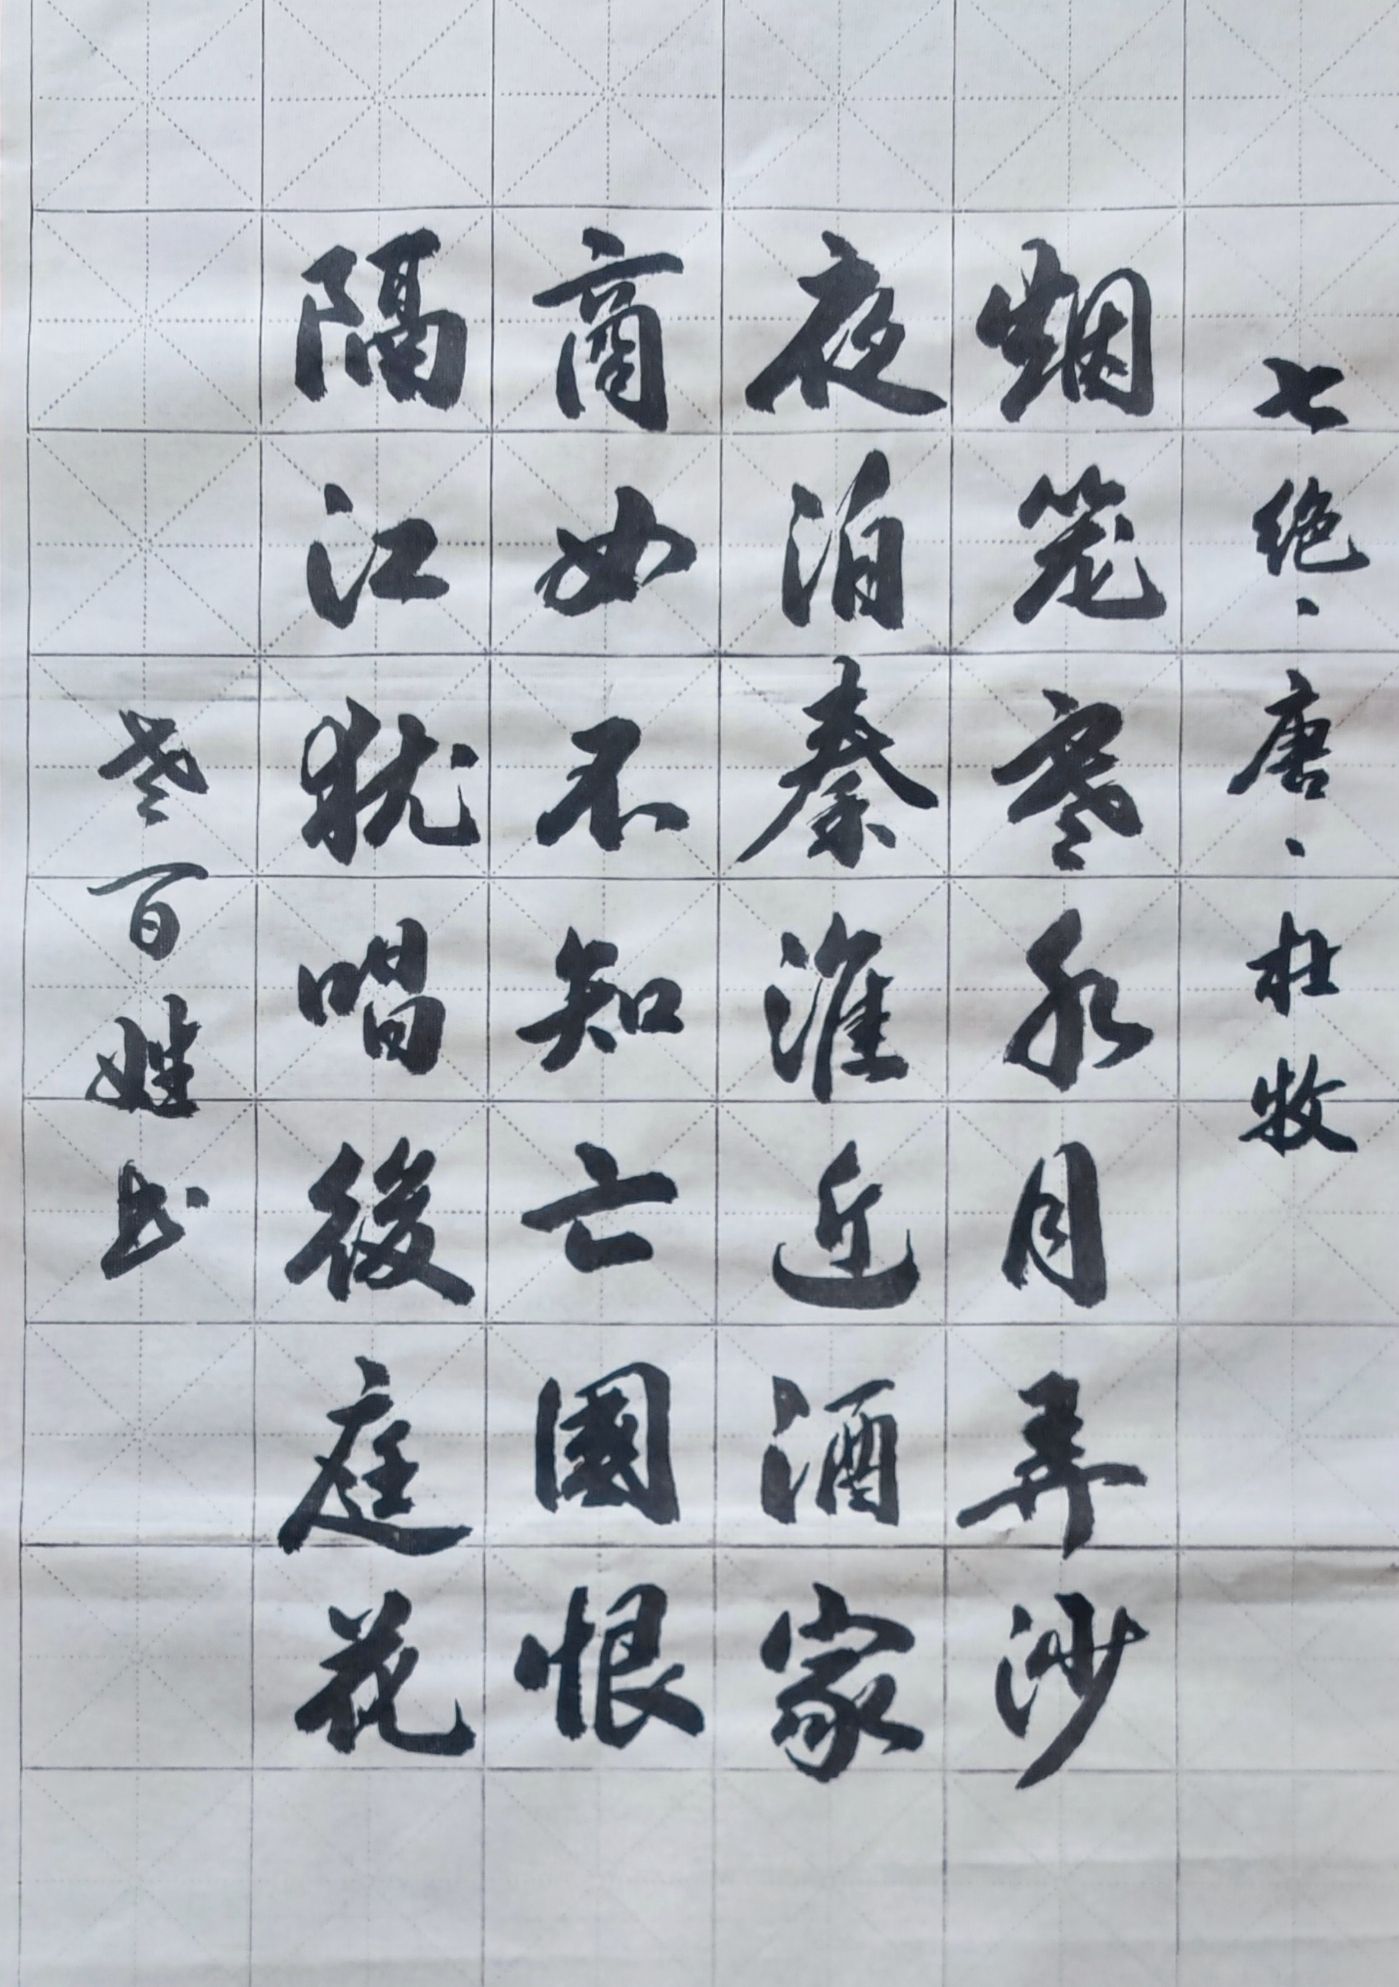 七绝、唐、杜牧
烟笼寒水月弄沙
夜泊秦淮近酒家
商女不知亡國恨
隔江犹唱後庭花
老百姓书